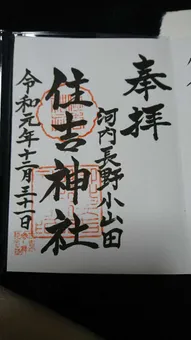 奉拝
河内長野小山田
住吉神社
令和元年十二月三十一日